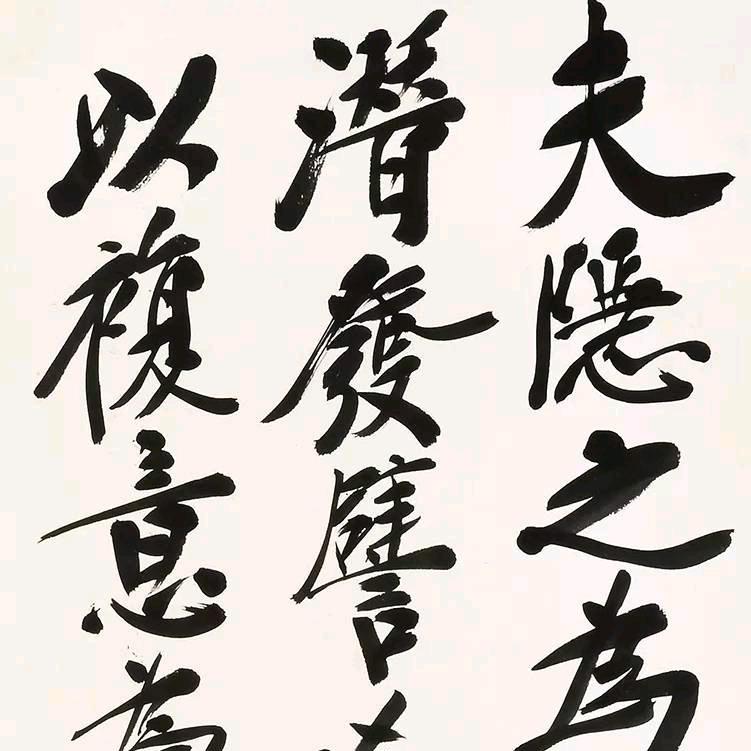 夫隱之為
潛發譬
以複意為